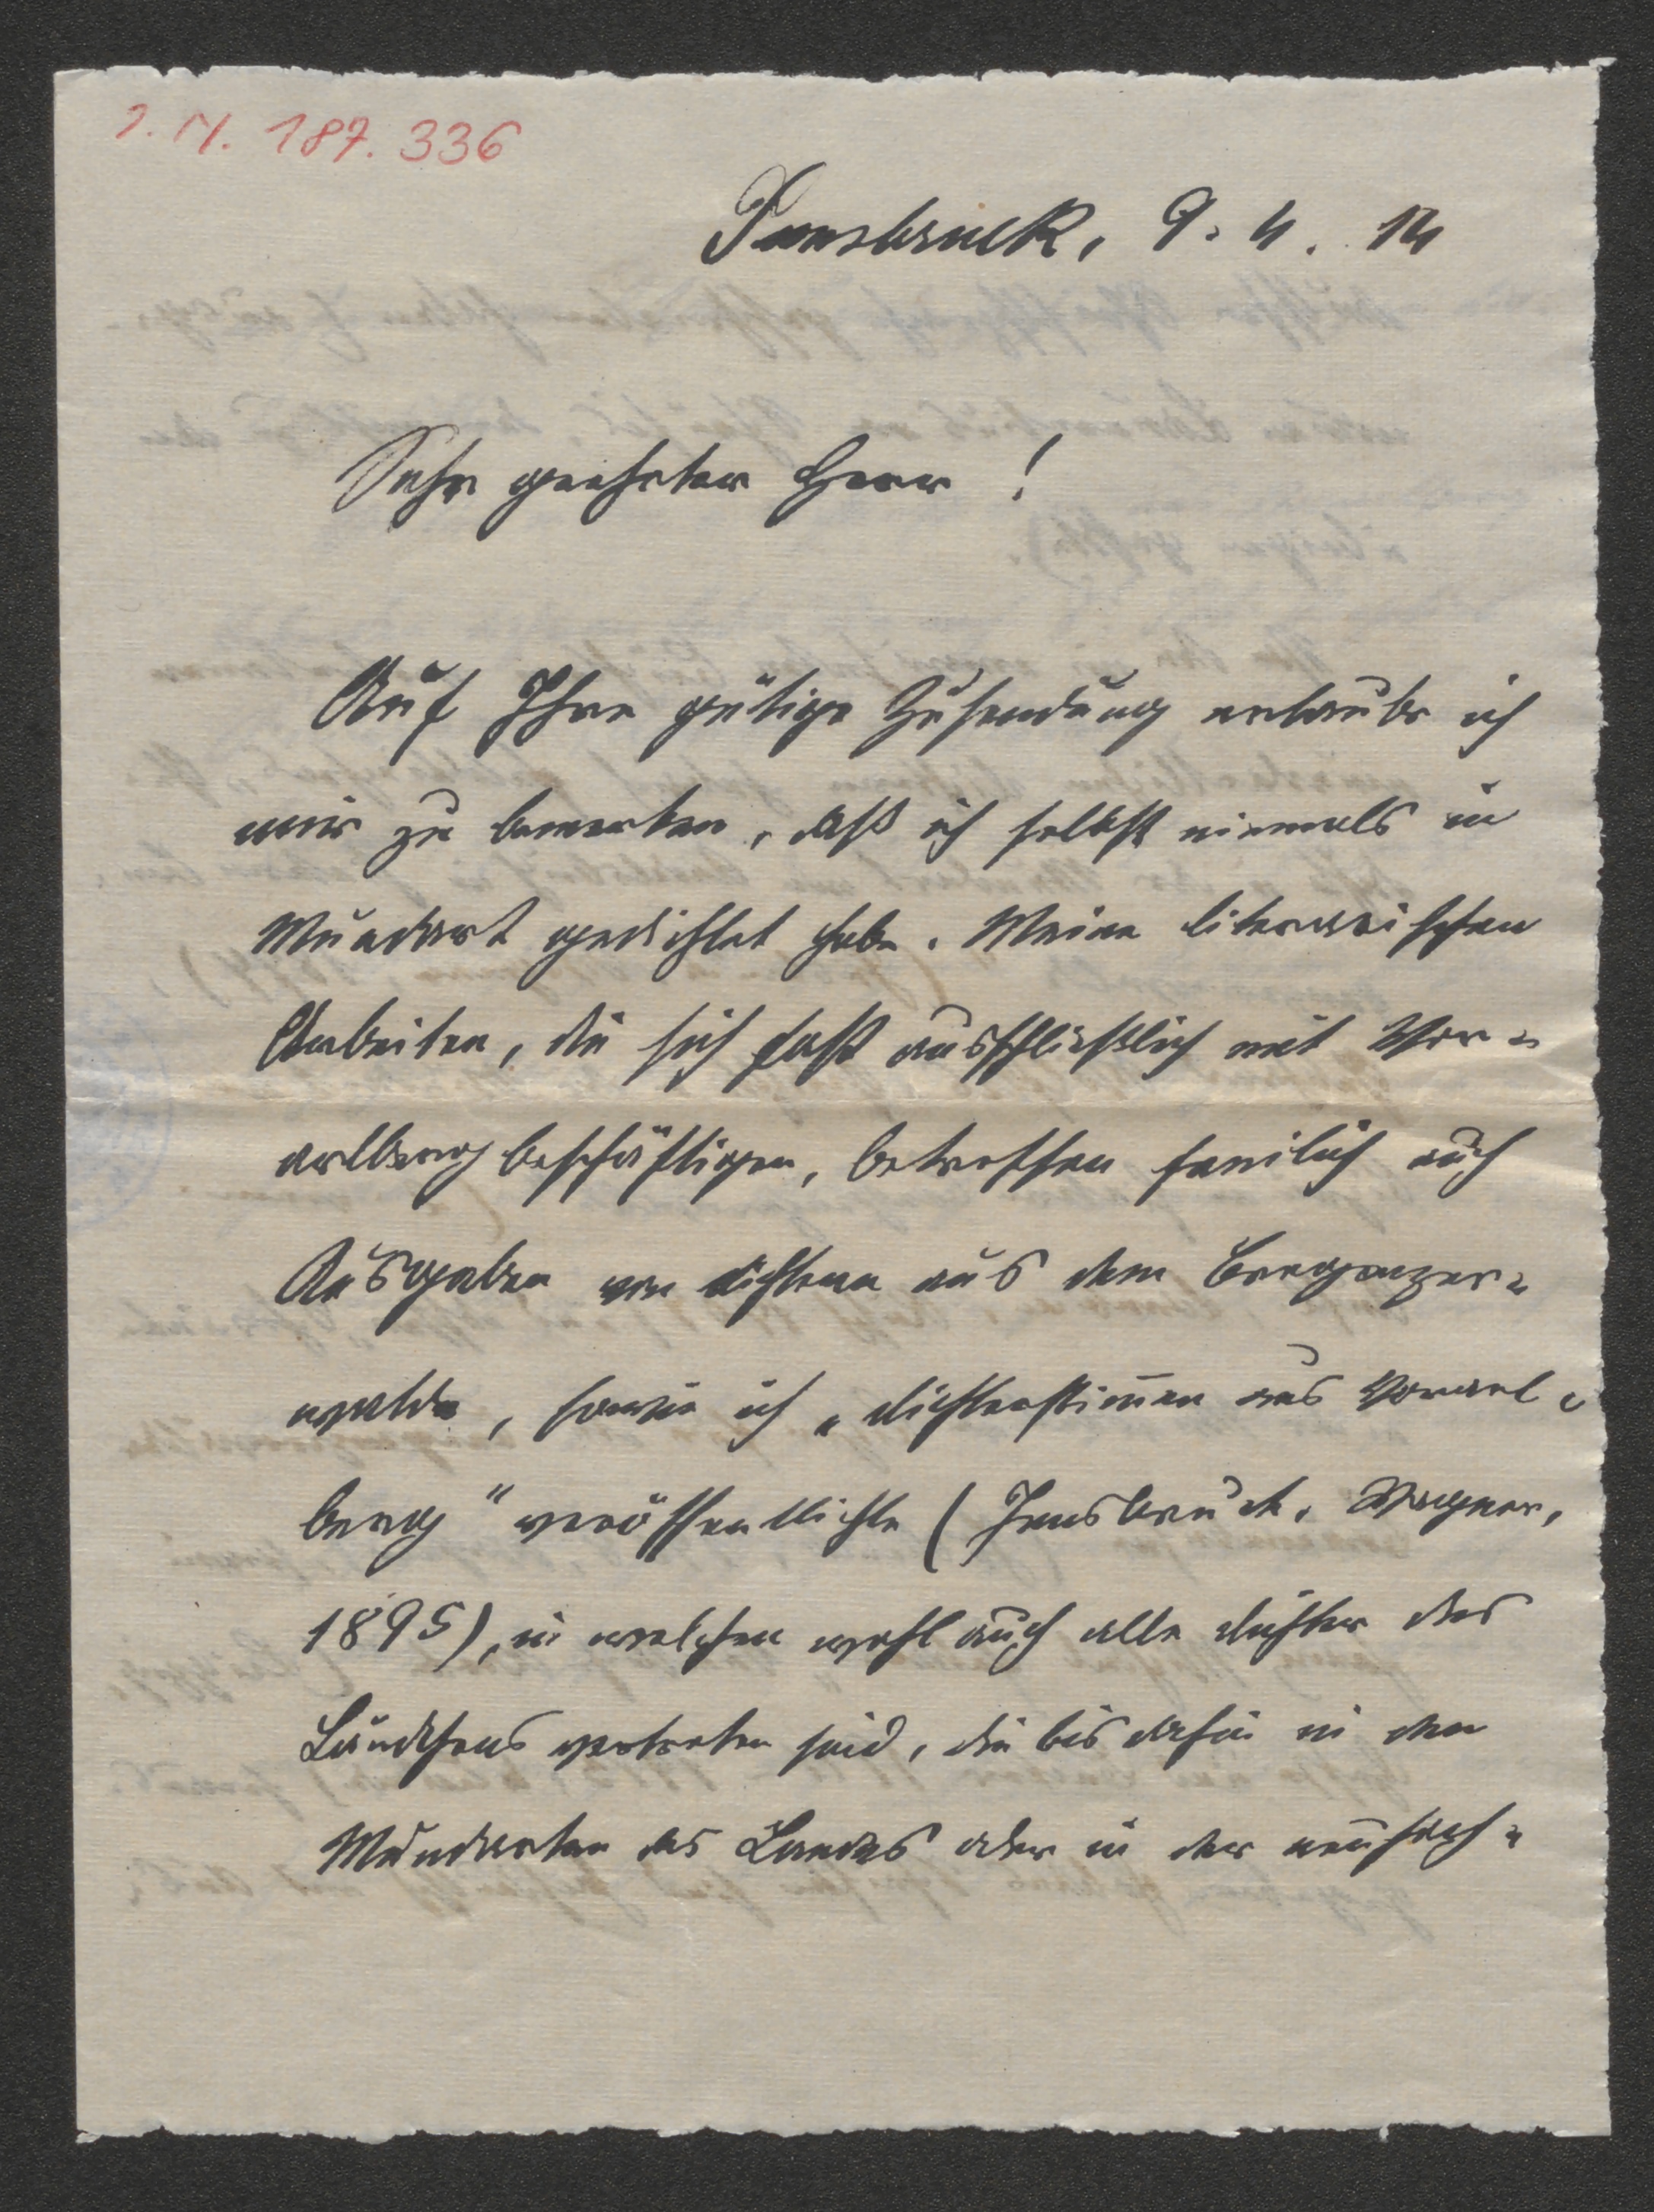 I. N. 187.336
Innsbruck, 9. 4. 14
Sehr geehrter Herr !
Auf Ihre gütige Zusendung erlaube ich
mir zu bemerken, daß ich selbst niemals in
Mundart gedichtet habe. Meine literarischen
Arbeiten, die sich fast ausschließlich mit Vor-
arlberg beschäftigen, betreffen freilich auch
Ausgaben von Dichtern aus dem Bregenzer-
walde, sowie ich „Dichterstimmen aus Vorarl-
berg" veröffentlichte (Innsbruck, Wagner,
1895), in welchen wohl auch alle Dichter des
Ländchens vertreten sind, die bis dahin in den
Mundarten des Landes oder in der neuhoch-